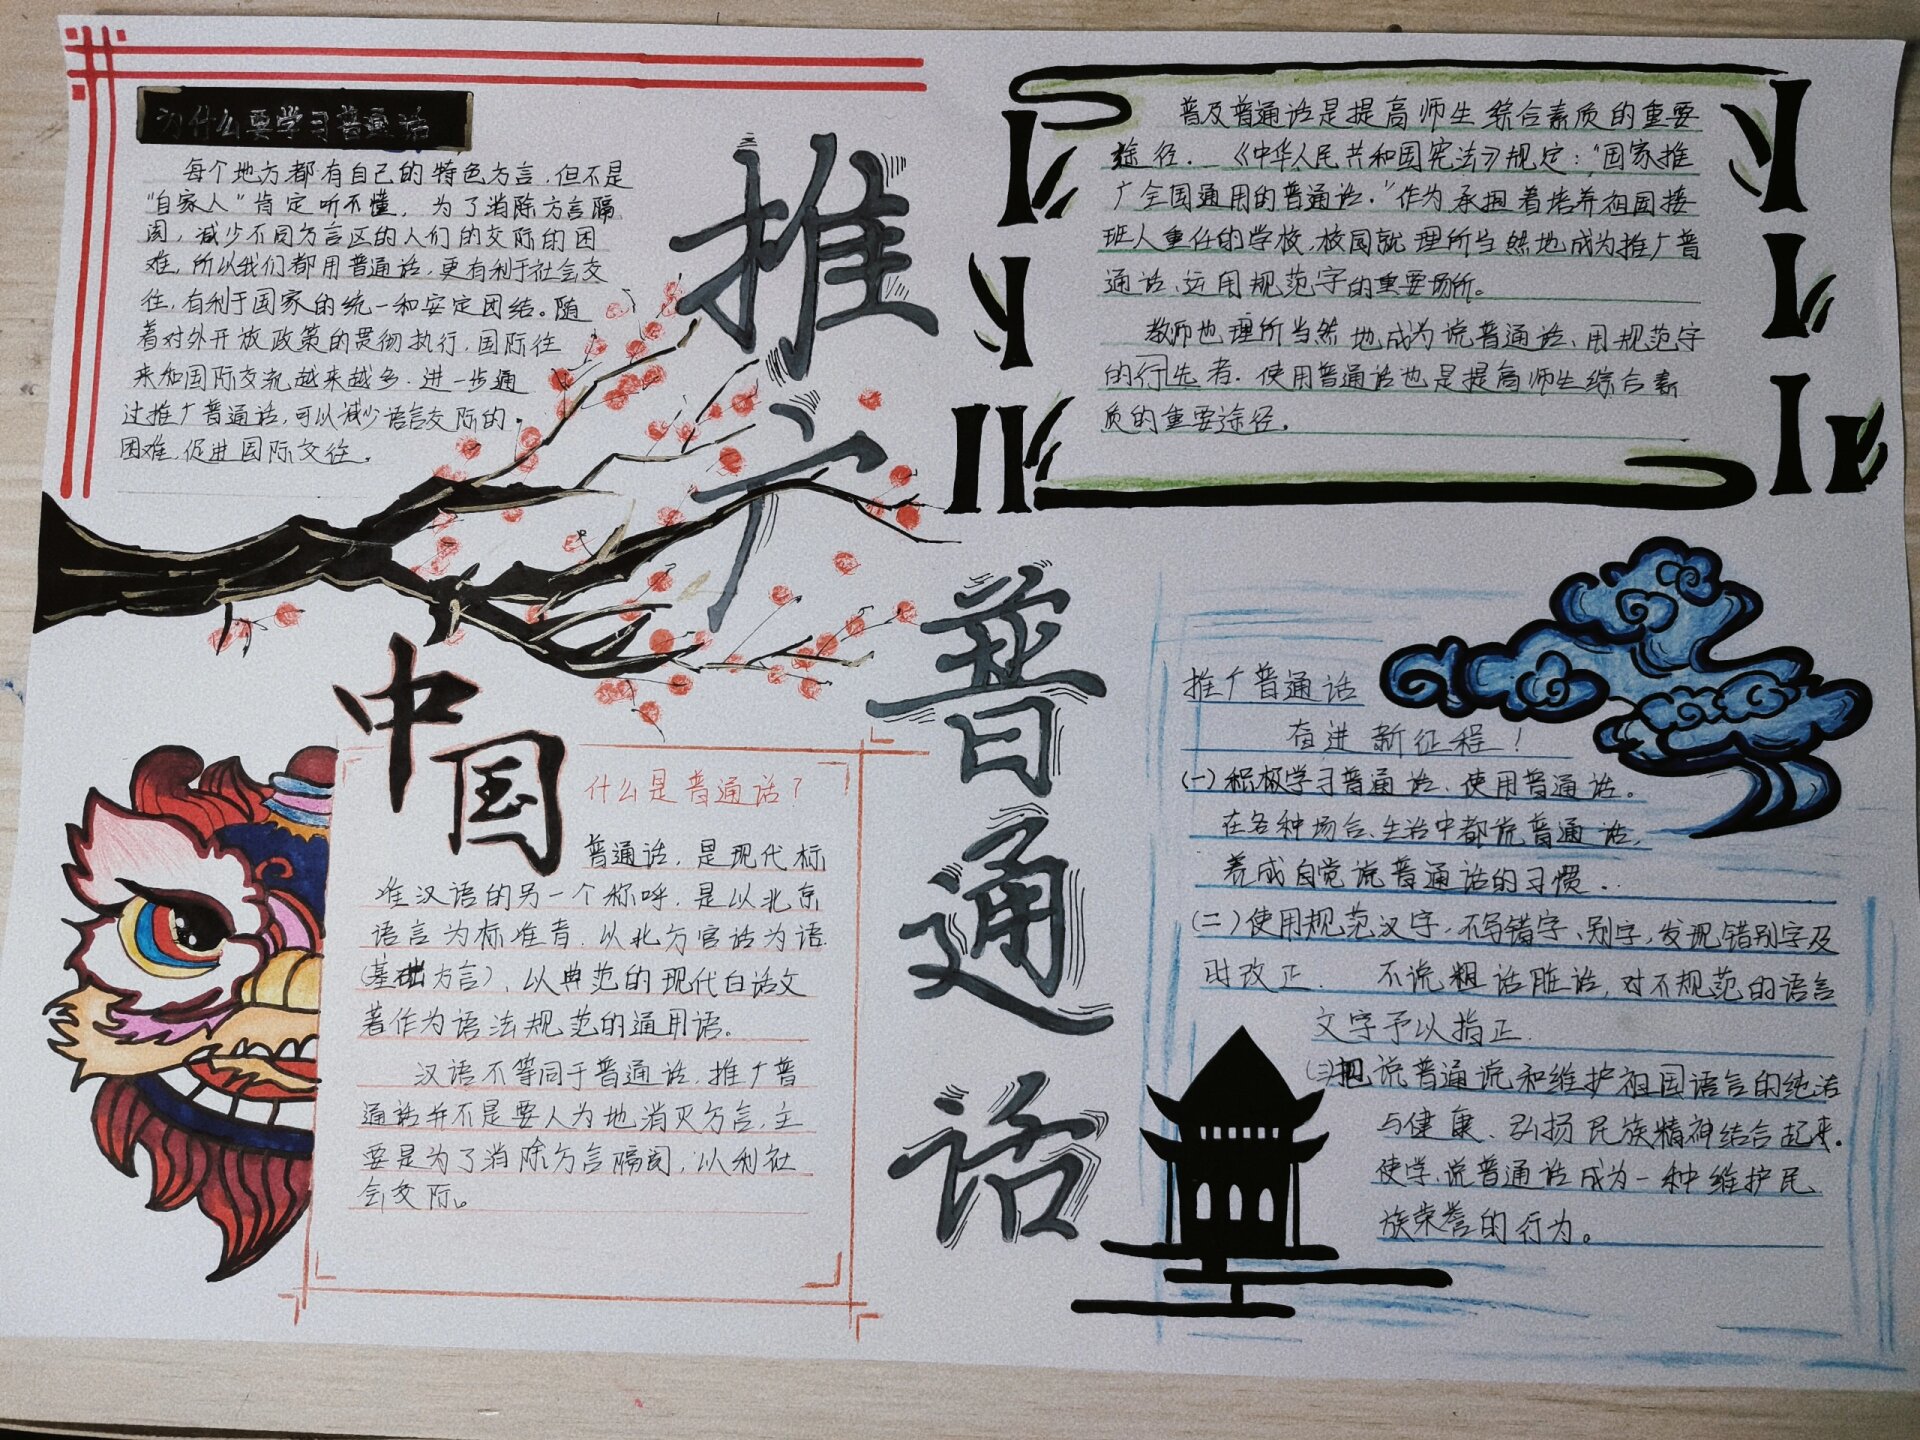 为什么要学习普通话
每个地方都有自己的特色方言,但不是
"自家人"肯定听不懂,为了消除方言隔
阂,减少不同方言区的人们的交际的困
难,所以我们都用普通话,更有利于社会交
往,有利于国家的统一和安定团结。随
着对外开放政策的贯彻执行,国际往
来和国际交流越来越多.进一步通
过推广普通话,可以减少语言交际的
困难,促进国际交往。
推广
普通话
普及普通话是提高师生综合素质的重要
途径.《中华人民共和国宪法》规定:"国家推
广全国通用的普通话."作为承担着培养祖国接
班人重任的学校,校园就理所当然地成为推广普
通话、运用规范字的重要场所。
教师也理所当然地成为说普通话、用规范字
的行先者.使用普通话也是提高师生综合素
质的重要途径.
中国
什么是普通话?
普通话,是现代标
准汉语的另一个称呼,是以北京
语言为标准音,以北方官话为语
(基础方言),以典范的现代白话文
著作为语法规范的通用语。
汉语不等同于普通话,推广普
通话并不是要人为地消灭方言,主
要是为了消除方言隔阂,以利社
会交际。
推广普通话
奋进新征程!
(一)积极学习普通话、使用普通话。
在各种场合、生活中都说普通话,
养成自觉说普通话的习惯.
(二)使用规范汉字,不写错字、别字,发现错别字及
时改正. 不说粗话脏话,对不规范的语言
文字予以指正.
(三)把说普通说和维护祖国语言的纯洁
与健康、弘扬民族精神结合起来.
使学、说普通话成为一种维护民
族荣誉的行为。